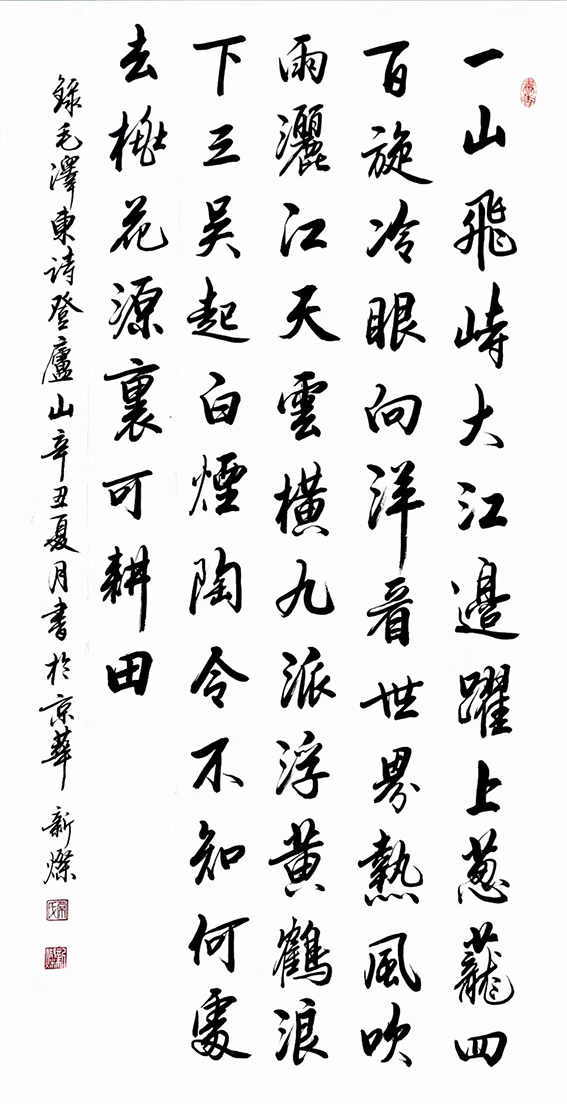 一山飛峙大江邊躍上葱蘢四
百旋冷眼向洋看世界熱風吹
雨灑江天雲橫九派浮黄鶴浪
下三吴起白煙陶令不知何處
去桃花源裏可耕田
録毛澤東詩登廬山辛丑夏月書於京華 新燦